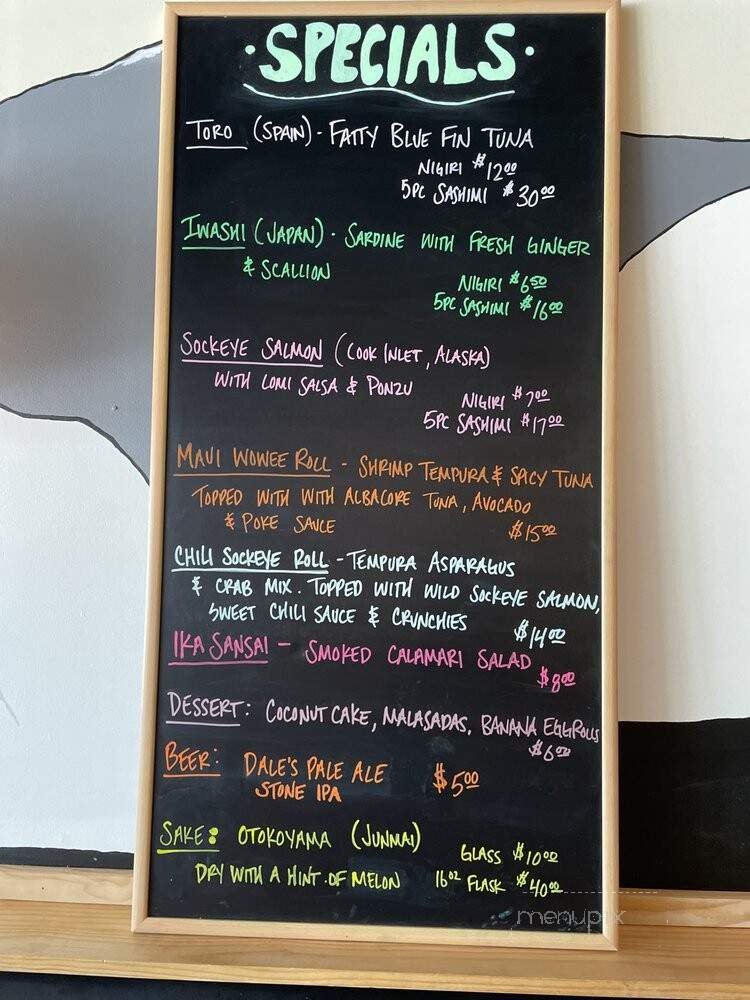 ·SPECIALS·
TORO (SPAIN) - FATTY BLUE FIN TUNA
NIGIRI $12.00
5PC SASHIMI $30.00
IWASHI (JAPAN) - SARDINE WITH FRESH GINGER
& SCALLION
NIGIRI $6.50
5PC SASHIMI $16.00
SOCKEYE SALMON (COOK INLET, ALASKA)
WITH LOMI SALSA & PONZU
NIGIRI $7.00
5PC SASHIMI $17.00
MAUI WOWEE ROLL - SHRIMP TEMPURA & SPICY TUNA
TOPPED WITH WITH ALBACORE TUNA, AVOCADO
& POKE SAUCE
$15.00
CHILI SOCKEYE ROLL - TEMPURA ASPARAGUS
& CRAB MIX. TOPPED WITH WILD SOCKEYE SALMON,
SWEET CHILI SAUCE & CRUNCHIES
$14.00
IKA SANSAI - SMOKED CALAMARI SALAD
$8.00
DESSERT: COCONUT CAKE, MALASADAS, BANANA EGGROLLS
$6.00
BEER: DALE'S PALE ALE $5.00
STONE IPA
SAKE: OTOKOYAMA (JUNMAI)
GLASS $10.00
DRY WITH A HINT OF MELON 16oz FLASK $40.00
menupix